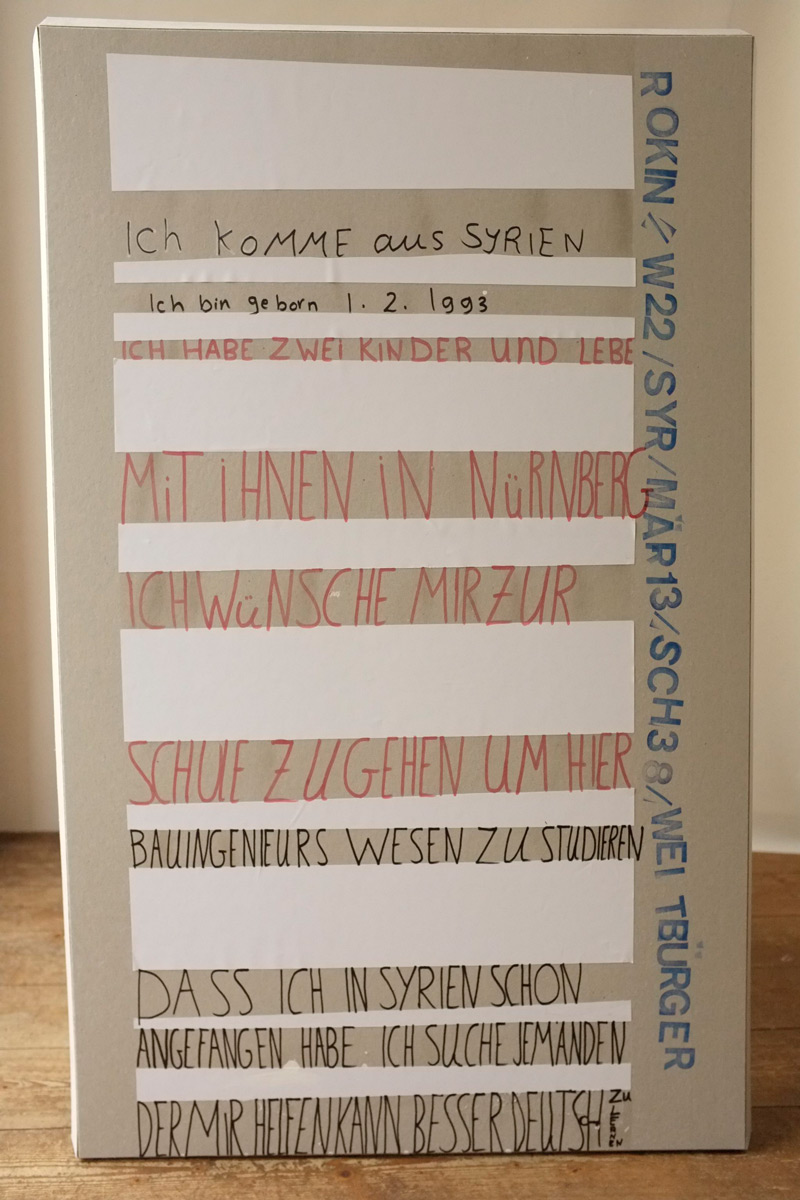 ICh KOMME aus SYRIEN
Ich bin geborn 1. 2. 1993
ICH HABE ZWEi KINDER UnD LEBE
MiT iHNEN iN NüRNBERG
ICH WüNSCHE MIR ZUR
SCHULE ZU GEHEN UM HIER
BAUINGENIEURS WESEN ZU STUDIEREN
DASS ICH IN SYRIEN SCHON
ANGEFANGEN HABE. ICH SUCHE JEMANDEN
DER MiR HELFEN KANN BESSER DEUTSH ZU
ROKIN // W22 / SYR / MÄR13 // SCH38 / WELTBÜRGER